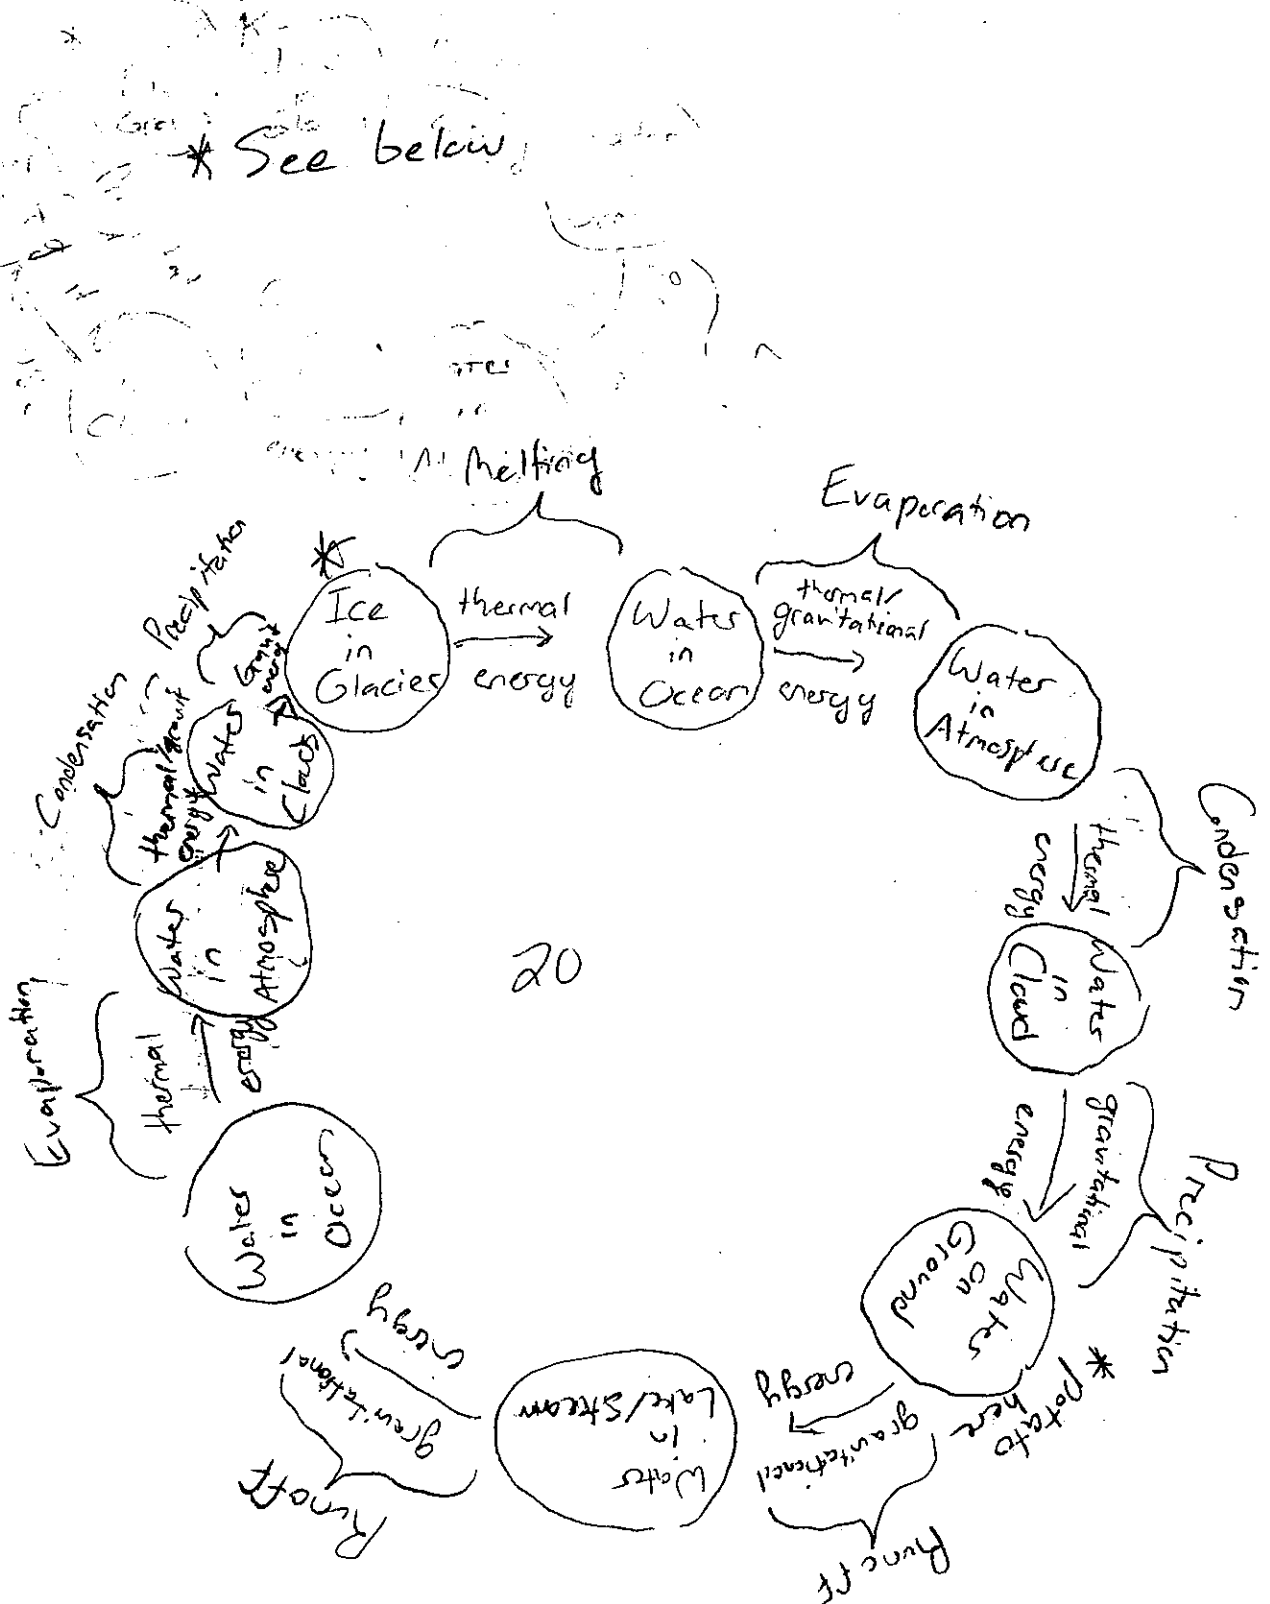 * See below
Melting
Evaporation
*
Ice
in
Glacies
thermal
energy
Water
in
Ocean
thermal/
gravitational
energy
Water
in
Atmosphere
Condensation
thermal
energy
Water
in
Cloud
Precipitation
gravitational
energy
Water
on
Ground
* potato
here
Runoff
gravitational
energy
Water
in
Lake/Stream
Runoff
gravitational
energy
Water
in
Ocean
Evaporation
thermal
energy
Water
in
Atmosphere
Condensation
thermal/gravit
energy
Water
in
Clouds
Precipitation
energy
20